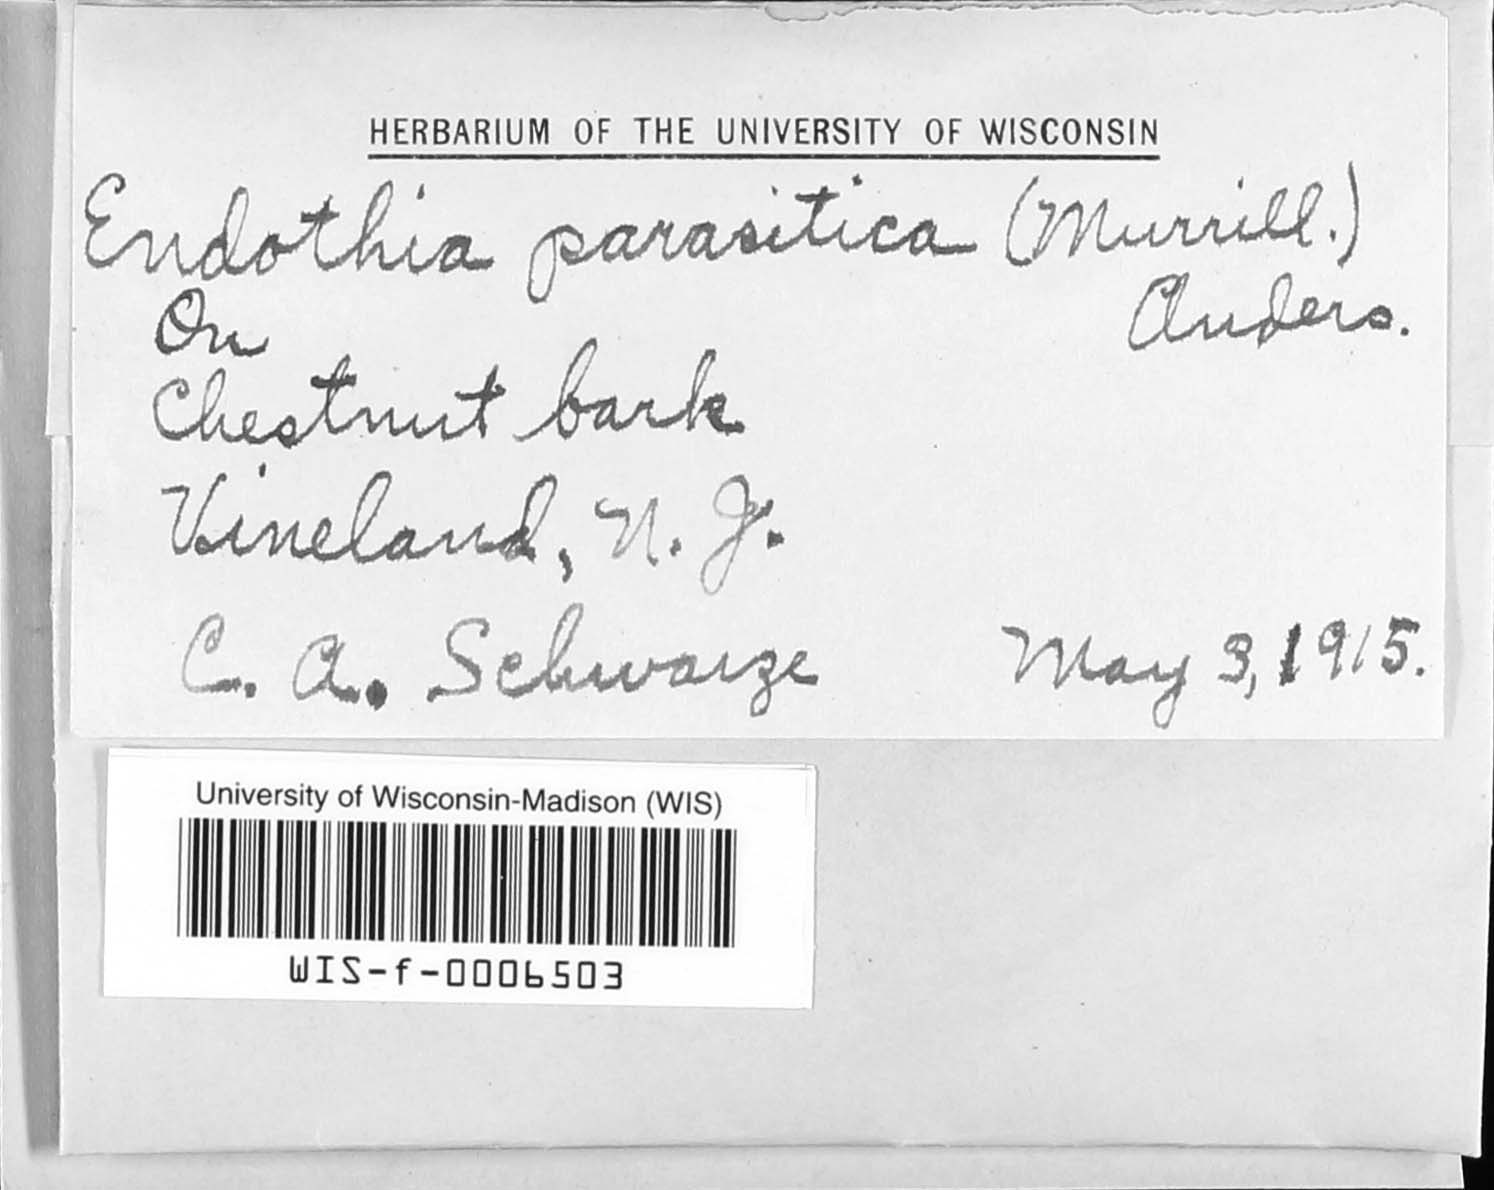 HERBARIUM OF THE UNIVERSITY OF WISCONSIN
Endothia parasitica (Murrill.)
Anders.
On
Chestnut bark
Vineland, N. J.
C. A. Schwarze May 3, 1915.
University of Wisconsin-Madison (WIS)
WIS-f-0006503